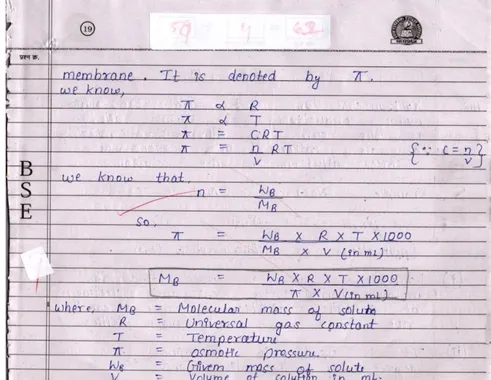 19
59 4 63
प्रश्न क्र.
membrane. It is denoted by π.
we know,
π α R
π α T
π = CRT
π = n RT {∵ C = n}
V { V}
BSE
we know that,
n = WB
MB
So,
π = WB X R X T X 1000
MB X V (in mL)
MB = WB X R X T X 1000
π X V(in mL)
where, MB = Molecular mass of solute
R = Universal gas constant
T = Temperature
π = osmotic pressure
WB = Given mass of solute
V = Volume of solution in mL.